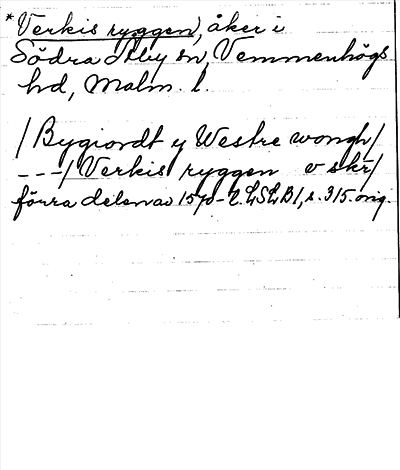 *Verkis ryggen, åker i
Södra Åby sn, Vemmenhögs
hd, Malm. l.
/Bygiordt y Westre wongh/
---/Verkis ryggen v skr/
förra delen av 1570-t. LSLB1, s. 315. orig.